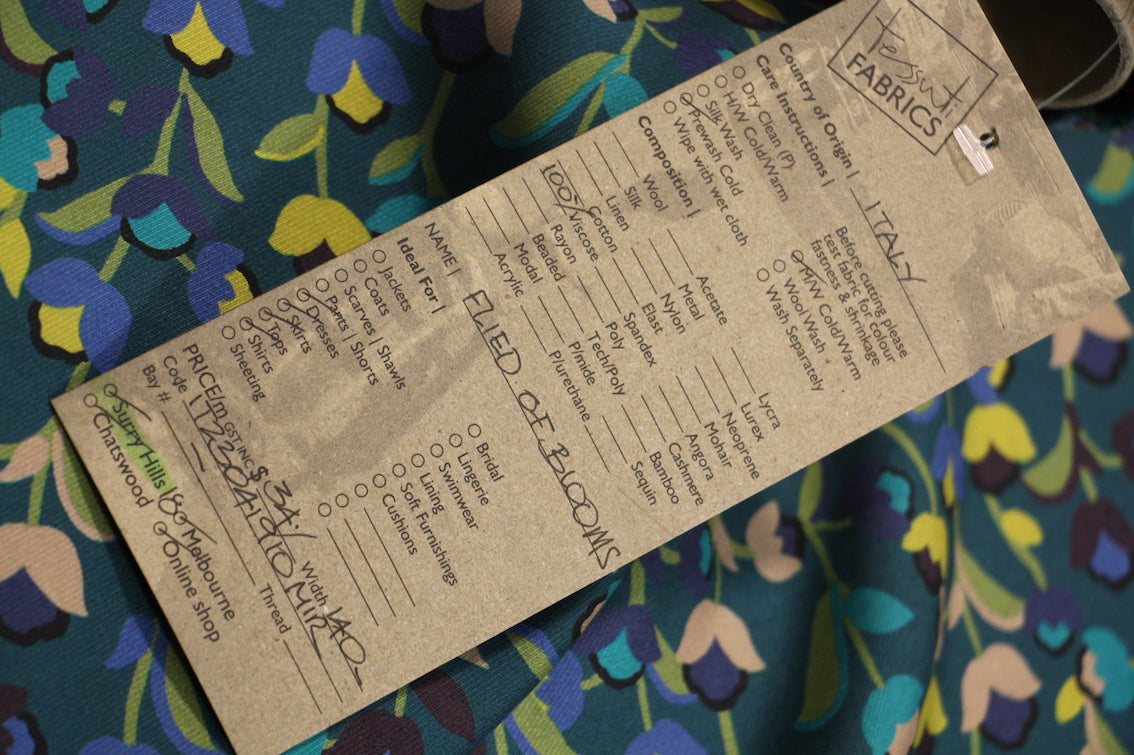 Tessuti
FABRICS
Country of Origin | ITALY
Care Instructions |
Dry Clean (P)
H/W Cold/Warm
Silk Wash
Prewash Cold
Wipe with wet cloth
Before cutting please
test fabric for colour
fastness & shrinkage
M/W Cold/Warm
Wool Wash
Wash Separately
Composition |
Wool
Silk
Linen
Cotton
100% Viscose
Rayon
Beaded
Modal
Acrylic
Acetate
Metal
Nylon
Elast
Spandex
Poly
Tech/Poly
P/mide
P/urethane
Lycra
Lurex
Neoprene
Mohair
Angora
Cashmere
Bamboo
Sequin
NAME | FLIED OF BLOOMS
Ideal For |
Jackets
Coats
Scarves | Shawls
Pants | Shorts
Dresses
Skirts
Tops
Shirts
Sheeting
Bridal
Lingerie
Swimwear
Lining
Soft Furnishings
Cushions
PRICE/m GST INC $ 34/- Width 140-
Code
Bay # Thread
Surry Hills Melbourne
Chatswood Online shop